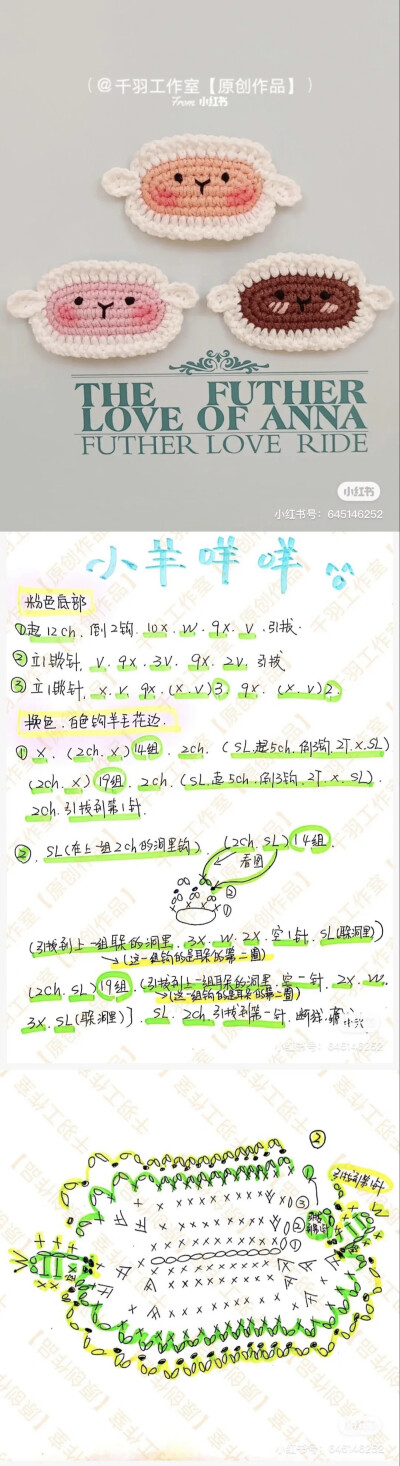 (@千羽工作室【原创作品】)
From 小红书
THE FUTHER
LOVE OF ANNA
FUTHER LOVE RIDE
小红书
小红书号: 645146252
小羊咩咩
粉色底部
①起12ch, 倒2钩. 10x. w. 9x. v. 引拔.
②立1锁针, v. 9x. 3v. 9x. 2v. 引拔
③立1锁针, x. v. 9x. (x.v)3. 9x. (x.v)2.
换色, 白色钩羊毛花边.
① x. (2ch. x)14组. 2ch. (SL.起5ch.倒3钩.2T.x.SL)
(2ch. x)19组. 2ch. (SL.起5ch.倒3钩.2T.x.SL).
2ch. 引拔到第1针.
②. SL(在上一组2ch的洞里钩). (2ch. SL)14组
看图
②
①
(引拔到上一组耳朵的洞里. 3X. W. 2X. 空1针. SL(耳朵洞里))
→(这一组钩的是耳朵的第二圈)
(2ch. SL)19组. (引拔到上一组耳朵的洞里. 空一针. 2X. W.
→(这一组钩的是耳朵的第二圈)
3X. SL(耳朵洞里)]. SL. 2ch. 引拔到第一针. 断线. 藏
小红书号: 645146252
②
引拔到第1针
①
③
②
①
小红书号: 645146252